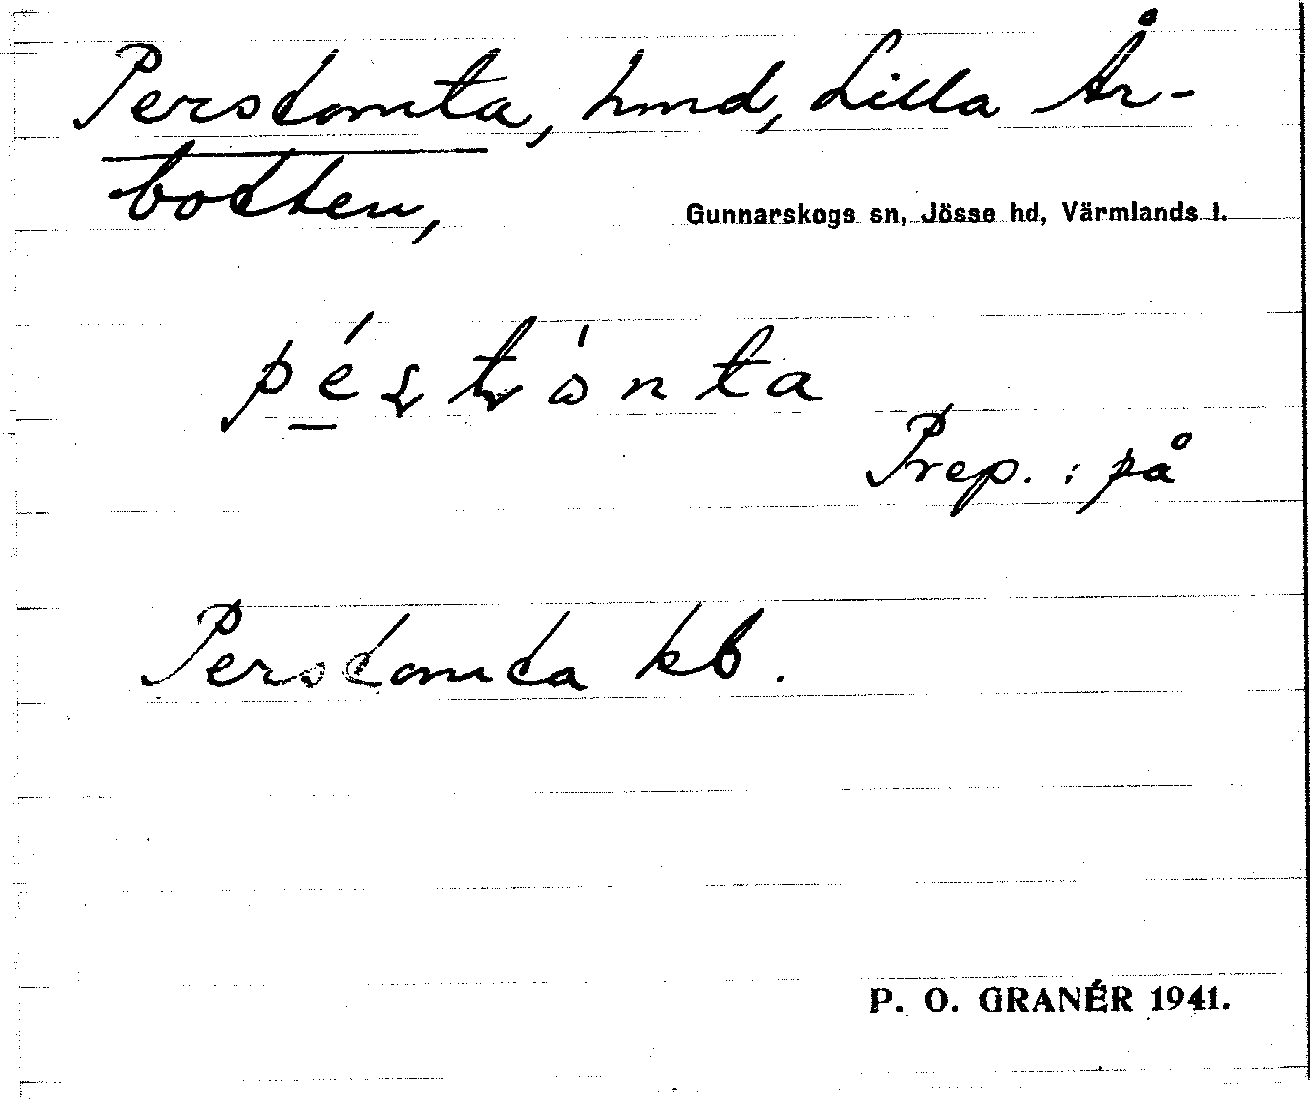 Perstomta, hmd, Lilla År-
botten,
Gunnarskogs sn, Jösse hd, Värmlands l.
Prep. : på
Perstomta kb.
P. O. GRANÉR 1941.